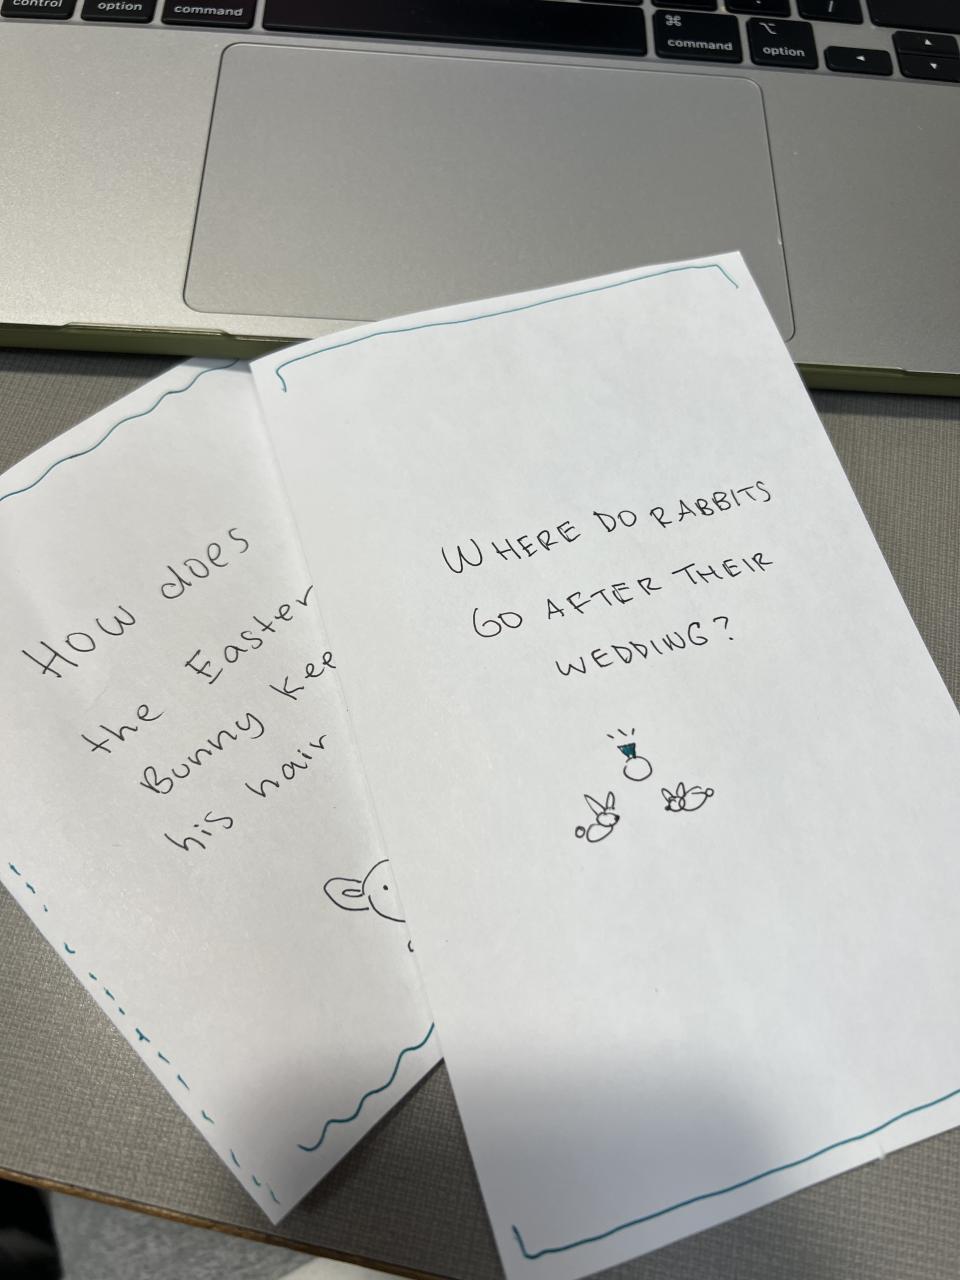 control
option
command
⌘
command
⌥
option
/
◄
▲
▼
How does
the Easter
Bunny kee
his hair
WHERE DO RABBITS
GO AFTER THEIR
WEDDING?